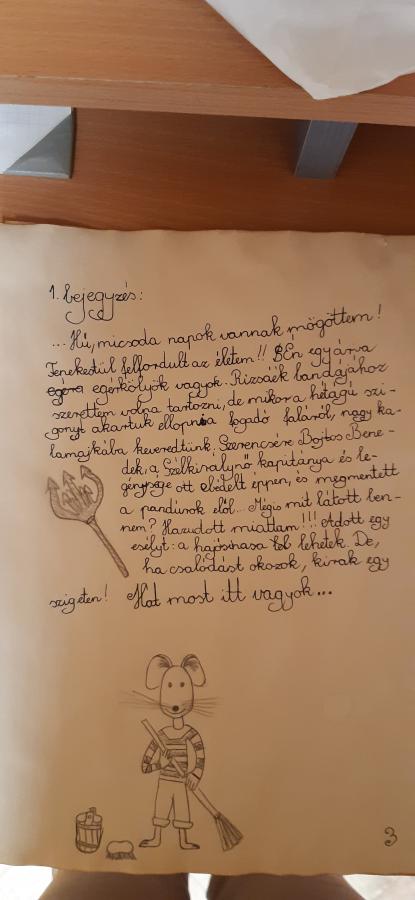 1. bejegyzés:
...Hű, micsoda napok vannak mögöttem!
Fenekestül felfordult az életem!! Én egy árva
egéra egérkölyök vagyok. Rizsáék bandájához
szerettem volna tartozni, de mikor a hétágú szi-
gonyt akartuk ellopni a fogadó faláról, nagy ka-
lamajkába keveredtünk. Szerencsére Bojtos Bene-
dek, a Szélkirálynő kapitánya és le-
génysége ott ebédelt éppen, és megmentett
a pandúrok elől... Mégis mit látott ben-
nem? Hazudott miattam!!! Adott egy
esélyt: a hajósinasa lehetek. De,
ha csalódást okozok, kirak egy
szigeten! Hát most itt vagyok...
3